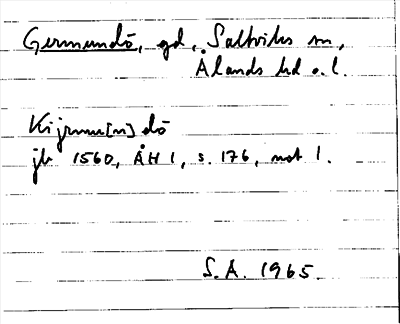 Germundö, gd, Saltviks sn,
Ålands hd o. l.
Kijrmu[n]dö
jb 1560, ÅH 1, s. 176, not 1.
S.A. 1965.